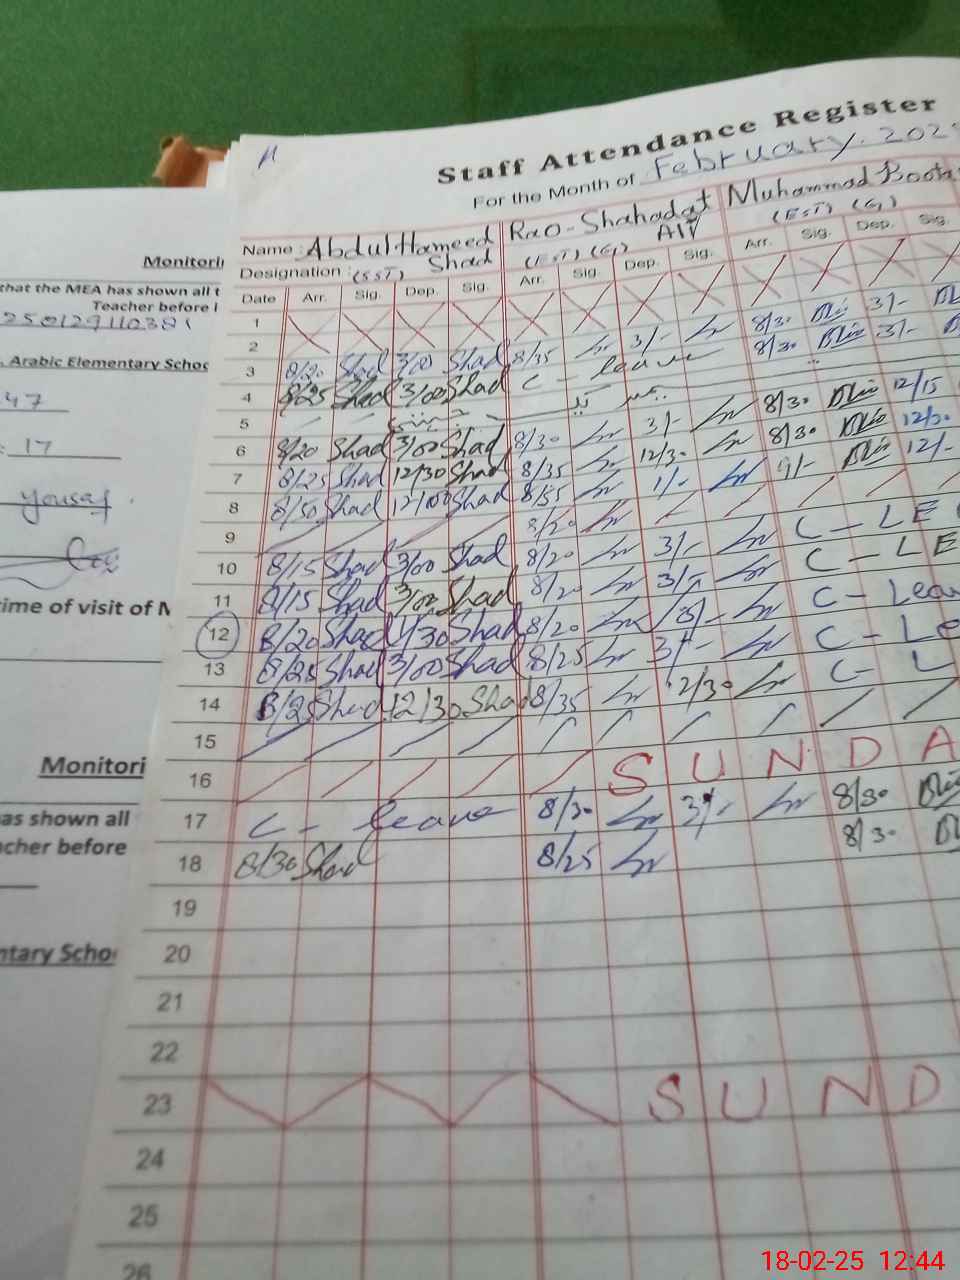 Staff Attendance Register
For the Month of February. 202
Name : Abdul Hameed Shad
Rao - Shahadat Ali
Muhammad Boota
Designation : (SST)
(EST) (G)
(EST) (G)
Date Arr. Sig. Dep. Sig. Arr. Sig. Dep. Sig. Arr. Sig. Dep. Sig.
1
2
3 8/20 Shad 3/00 Shad 8/35 3/- 8/30 3/-
4 8/25 Shad 3/00 Shad C - leave 8/30 3/-
5
6 8/20 Shad 3/00 Shad 8/30 3/- 8/30 12/15
7 8/25 Shad 12/30 Shad 8/35 12/30 8/30 12/30
8 8/50 Shad 12/00 Shad 8/55 1/- 9/- 12/-
9 8/20
10 8/15 Shad 3/00 Shad 8/20 3/- C - LE
11 8/15 Shad 3/00 Shad 8/20 3/- C - LE
12 8/20 Shad 1/30 Shad 8/20 C - Lea
13 8/25 Shad 3/00 Shad 8/25 3/- C - Le
14 8/25 Shad 12/30 Shad 8/35 12/30 C - L
15
16 S U N D A
17 C - leave 8/30 3/- 8/30
18 8/30 Shad 8/25 8/30
19
20
21
22
23 S U N D
24
25
26
Monitori
that the MEA has shown all t
Teacher before l
. Arabic Elementary Schoo
47
: 17
yousaf.
time of visit of M
Monitori
as shown all
cher before
ntary Schoo
18-02-25 12:44